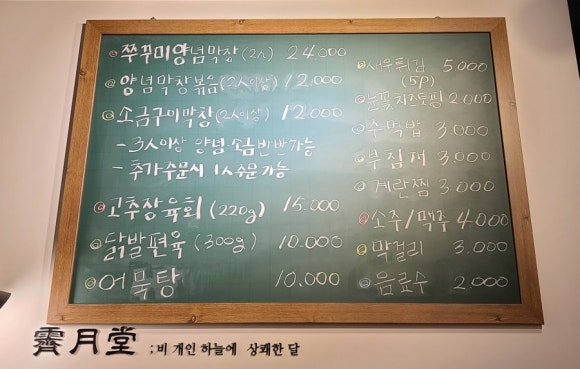 쭈꾸미양념막창(2人) 24.000
양념막창볶음(2人이상) 12.000
소금구이막창(2人이상) 12.000
- 3人이상 양념 소금 반반 가능
- 추가주문시 1人주문 가능
고추장육회 (220g) 15.000
닭발편육 (300g) 10.000
어묵탕 10.000
새우튀김 5.000
(5P)
눈꽃치즈토핑 2.000
주먹밥 3.000
부침개 3.000
계란찜 3.000
소주/맥주 4.000
막걸리 3.000
음료수 2.000
霽月堂 : 비 개인 하늘에 상쾌한 달